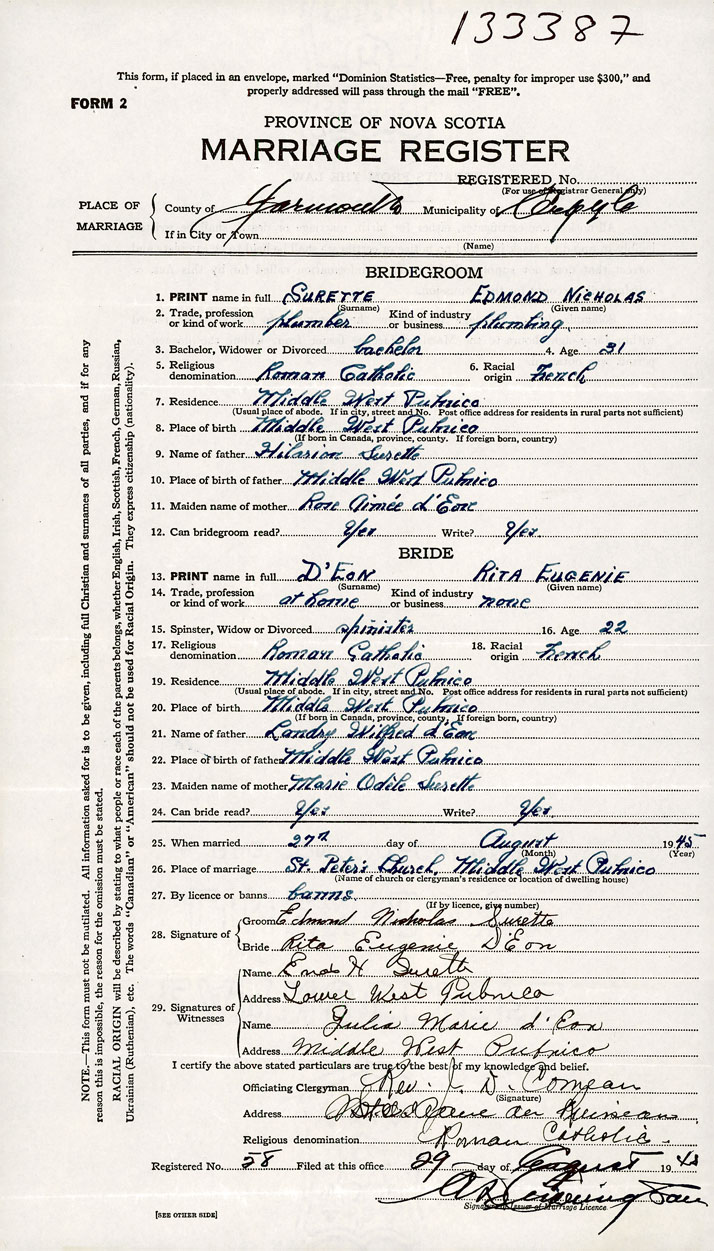 133387
This form, if placed in an envelope, marked "Dominion Statistics—Free, penalty for improper use $300," and
properly addressed will pass through the mail "FREE".
FORM 2
PROVINCE OF NOVA SCOTIA
MARRIAGE REGISTER
REGISTERED No.
(For use of Registrar General only)
PLACE OF MARRIAGE
County of Yarmouth Municipality of Argyle
If in City or Town
(Name)
BRIDEGROOM
1. PRINT name in full SURETTE EDMOND NICHOLAS
(Surname) (Given name)
2. Trade, profession or kind of work plumber Kind of industry or business plumbing
3. Bachelor, Widower or Divorced bachelor 4. Age 31
5. Religious denomination Roman Catholic 6. Racial origin French
7. Residence Middle West Pubnico
(Usual place of abode. If in city, street and No. Post office address for residents in rural parts not sufficient)
8. Place of birth Middle West Pubnico
(If born in Canada, province, county. If foreign born, country)
9. Name of father Hilarion Surette
10. Place of birth of father Middle West Pubnico
11. Maiden name of mother Rose Aimée d'Eon
12. Can bridegroom read? Yes Write? Yes
BRIDE
13. PRINT name in full D'EON RITA EUGENIE
(Surname) (Given name)
14. Trade, profession or kind of work at home Kind of industry or business none
15. Spinster, Widow or Divorced spinister 16. Age 22
17. Religious denomination Roman Catholic 18. Racial origin French
19. Residence Middle West Pubnico
(Usual place of abode. If in city, street and No. Post office address for residents in rural parts not sufficient)
20. Place of birth Middle West Pubnico
(If born in Canada, province, county, If foreign born, country)
21. Name of father Landry Wilfred d'Eon
22. Place of birth of father Middle West Pubnico
23. Maiden name of mother Marie Odèle Surette
24. Can bride read? Yes Write? Yes
25. When married 27th day of August 1945
(Month) (Year)
26. Place of marriage St. Peter's Church, Middle West Pubnico
(Name of church or clergyman's residence or location of dwelling house)
27. By licence or banns banns
(If by licence, give number)
28. Signature of
Groom Edmond Nicholas Surette
Bride Rita Eugenie D'Eon
29. Signatures of Witnesses
Name H Surette
Address Lower West Pubnico
Name Julia Marie d'Eon
Address Middle West Pubnico
I certify the above stated particulars are true to the best of my knowledge and belief.
Officiating Clergyman Rev. J. D. Comeau
(Signature)
Address
Religious denomination Roman Catholic.
Registered No. 58 Filed at this office 29 day of August 1945
Signature of Issuer of Marriage Licence
[SEE OTHER SIDE]
NOTE.—This form must not be mutilated. All information asked for is to be given, including full Christian and surnames of all parties, and if for any
reason this is impossible, the reason for the omission must be stated.
RACIAL ORIGIN will be described by stating to what people or race each of the parents belongs, whether English, Irish, Scottish, French, German, Russian,
Ukrainian (Ruthenian), etc. The words "Canadian" or "American" should not be used for Racial Origin. They express citizenship (nationality).